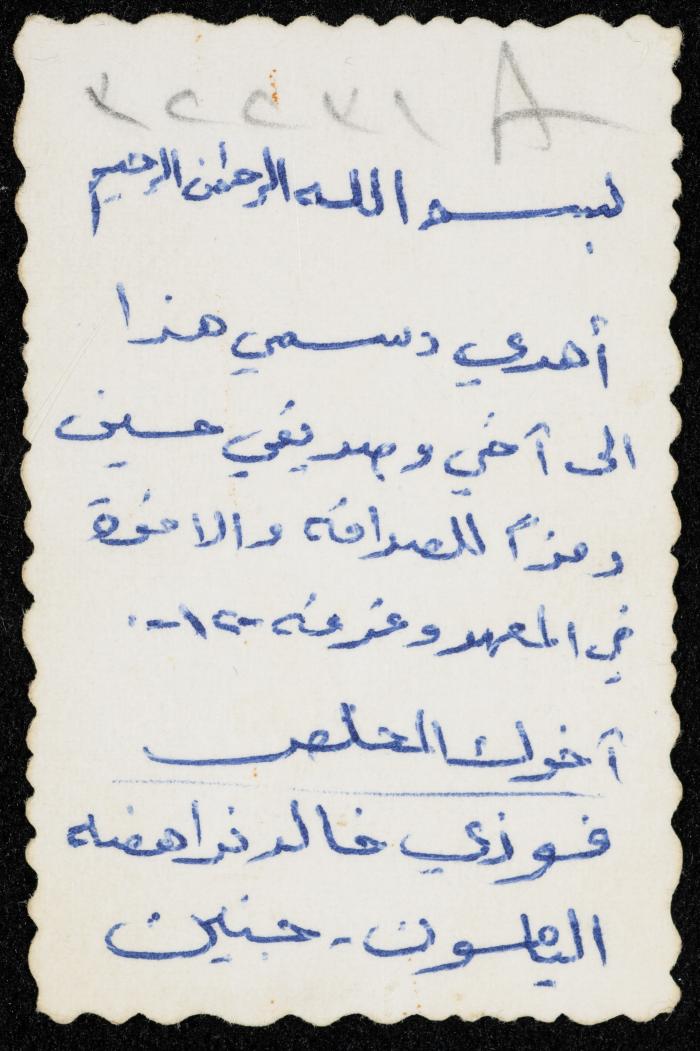 بسم الله الرحمن الرحيم
أهدي رسمي هذا
الى أخي وصديقي حسين
رمزاً للصداقه والاخوة
في المعهد وغرفه -١٢-
أخوك المخلص
فوزي خالد نزاهضه
اليامون - جنين